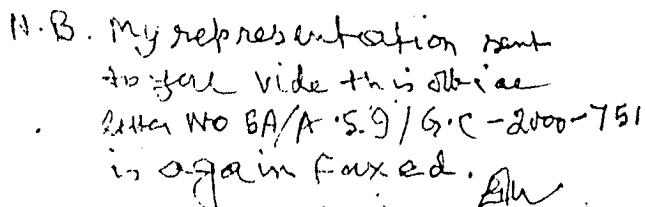 N.B. My representation sent
to you vide this office
letter No EA/A.S.9/G.C-2000-751
is again Faxed.